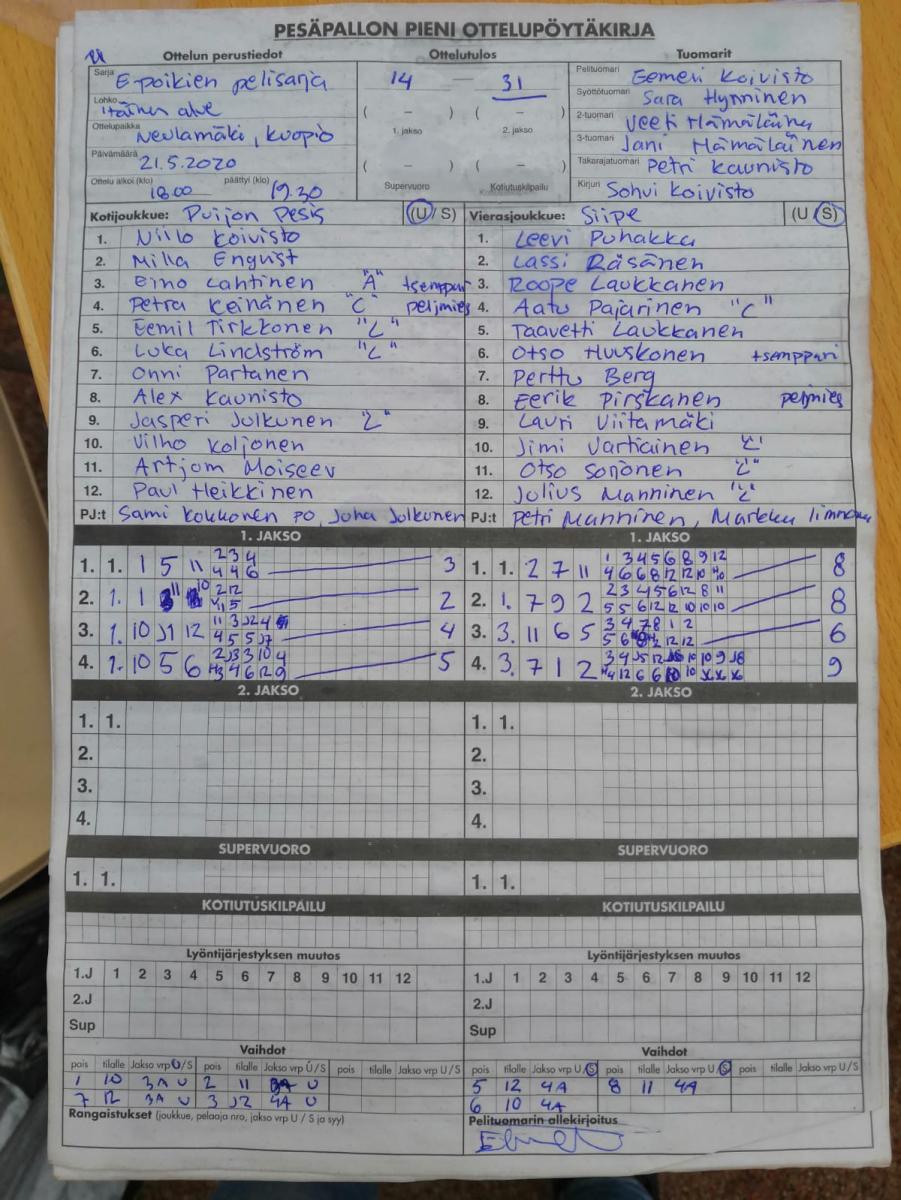 PESÄPALLON PIENI OTTELUPÖYTÄKIRJA
Ottelun perustiedot Ottelutulos Tuomarit
Sarja E-poikien pelisarja 14 – 31 Pelituomari Eemeri Koivisto
Lohko Itäinen alue ( – ) ( – ) Syöttötuomari Sara Hynninen
Ottelupaikka Neulamäki, Kuopio 1. jakso 2. jakso 2-tuomari Veeti Hämäläinen
Päivämäärä 21.5.2020 ( – ) ( – ) 3-tuomari Jani Hämäläinen
Takarajatuomari Petri Kaunisto
Ottelu alkoi (klo) 18.00 päättyi (klo) 19.30 Supervuoro Kotiutuskilpailu Kirjuri Sohvi Koivisto
Kotijoukkue: Puijon Pesis (U/S) Vierasjoukkue: Siipe (U/S)
1. Niilo Koivisto 1. Leevi Puhakka
2. Milla Enqvist 2. Lassi Räsänen
3. Eino Lahtinen "A" tsemppari 3. Roope Laukkanen
4. Petra Keinänen "C" pelimies 4. Aatu Pajarinen "C"
5. Eemil Tirkkonen "L" 5. Taavetti Laukkanen
6. Luka Lindström "L" 6. Otso Huuskonen tsemppari
7. Onni Partanen 7. Perttu Berg
8. Alex Kaunisto 8. Eerik Pirskanen pelimies
9. Jasperi Julkunen "L" 9. Lauri Viitamäki
10. Vilho Koljonen 10. Jimi Vartiainen "L"
11. Artjom Moiseev 11. Otso Sorjonen "L"
12. Paul Heikkinen 12. Julius Manninen "L"
PJ:t Sami Kokkonen PO, Juha Julkunen PJ:t Petri Manninen, Markku
1. JAKSO 1. JAKSO
1. 1. 1 5 11 2 3 4 3 1. 1. 2 7 11 1 3 4 5 6 8 9 12 8
4 4 6 4 6 6 8 12 12 10
2. 1. 1 11 10 2 12 2 2. 1. 7 9 2 2 3 4 5 6 12 8 11 8
5 5 5 6 12 12 10 10 10
3. 1. 10 J1 12 11 3 J2 4 4 3. 3. 11 6 5 3 4 7 8 1 2 6
4 5 5 J7 5 6 12 12
4. 1. 10 5 6 2 J3 3 10 4 5 4. 3. 7 1 2 3 4 J5 12 10 10 9 J8 9
4 6 12 9 12 6 6 10
2. JAKSO 2. JAKSO
1. 1. 1. 1.
2. 2.
3. 3.
4. 4.
SUPERVUORO SUPERVUORO
1. 1. 1. 1.
KOTIUTUSKILPAILU KOTIUTUSKILPAILU
Lyöntijärjestyksen muutos Lyöntijärjestyksen muutos
1.J 1 2 3 4 5 6 7 8 9 10 11 12 1.J 1 2 3 4 5 6 7 8 9 10 11 12
2.J 2.J
Sup Sup
Vaihdot Vaihdot
pois tilalle Jakso vrp U/S pois tilalle Jakso vrp U/S pois tilalle Jakso vrp U/S pois tilalle Jakso vrp U/S pois tilalle Jakso vrp U/S pois tilalle Jakso vrp U/S
1 10 3A U 2 11 3A U 5 12 4A 8 11 4A
7 12 3A U 3 J2 4A U 6 10 4A
Rangaistukset (joukkue, pelaaja nro, jakso vrp U / S ja syy) Pelituomarin allekirjoitus